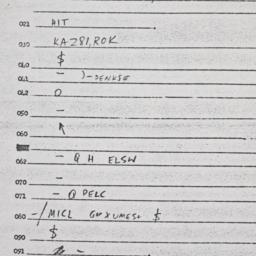 021 HIT
030 KAZ81,ROK
040 $
041 - )-DENKSE
042 0
050 -
060
062 - Q H ELSW
070 -
071 - Q PELC
080 -/MICL GMXUMES+ $
090 $
091 -